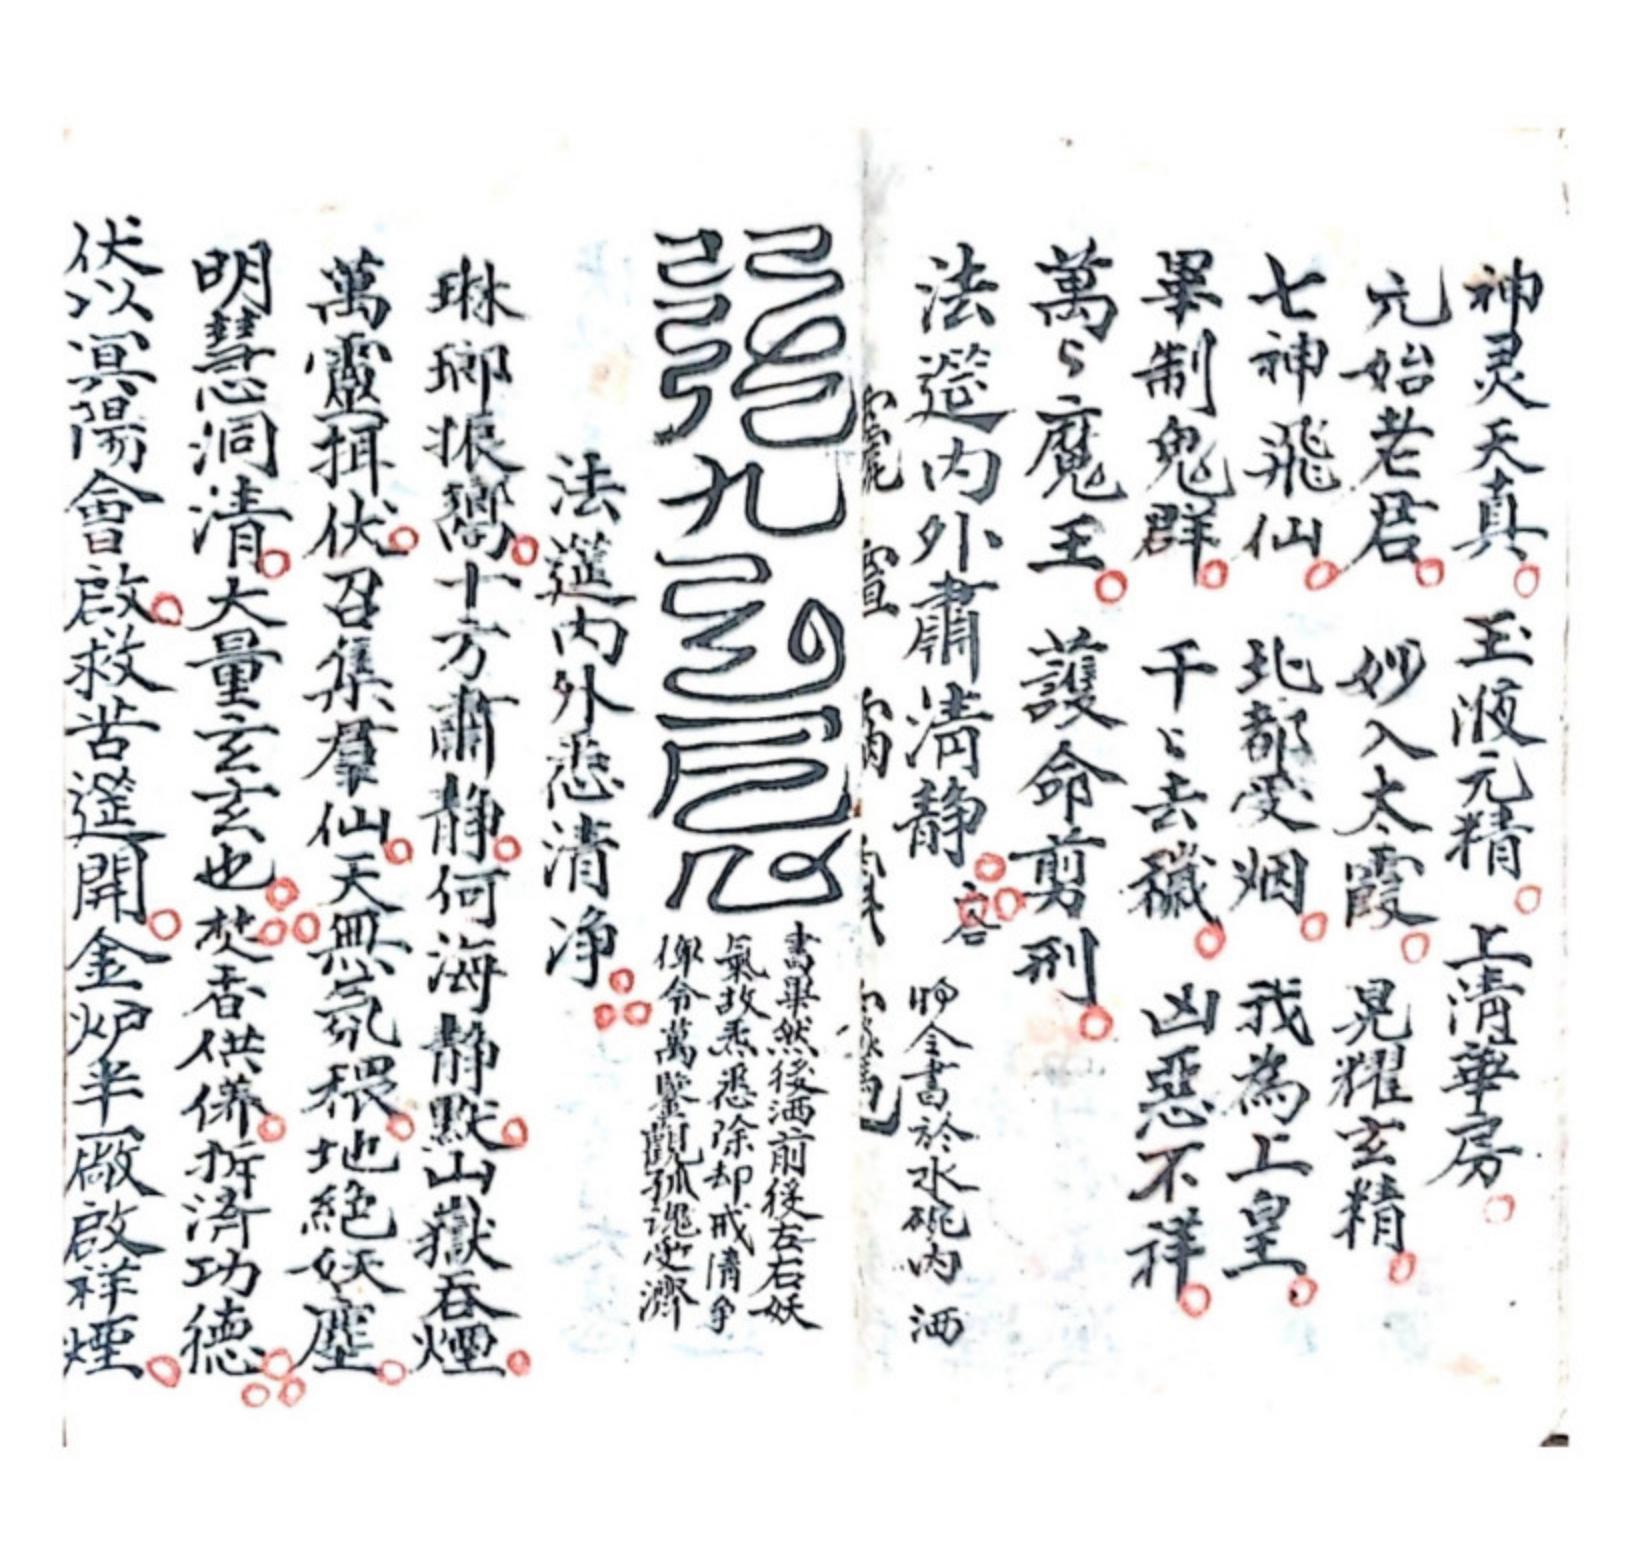 神灵天真 玉液元精 上清華房
元始老君 妙入太霞 晃耀玄精
七神飛仙 北都受烟 我為上皇
畢制鬼群 千々去穢 凶惡不祥
萬々魔王 護命剪刑
法筵内外肅清静
書於水碗内 洒
書畢然後洒前後左右妖
氣故悉除却戒清争
俾令萬聖觀孤魂更濟
法筵内外悉清净
琳瑯振嚮十方肅静何海静默山嶽吞煙
萬靈揖伏召集羣仙天無氛穢地絶妖塵
明慧洞清大量玄玄也焚香供養拆濟功德
伏以冥陽會啟救苦筵開金炉半𤑔啟祥煙